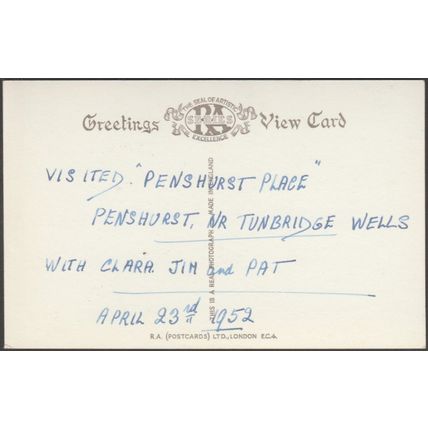 THE SEAL OF ARTISTIC
RA
SERIES
EXCELLENCE
Greetings View Card
VISITED "PENSHURST PLACE"
PENSHURST, NR TUNBRIDGE WELLS
WITH CLARA JIM and PAT
APRIL 23rd 1952
THIS IS A REAL PHOTOGRAPH MADE IN ENGLAND
R.A. (POSTCARDS) LTD., LONDON E.C.4.